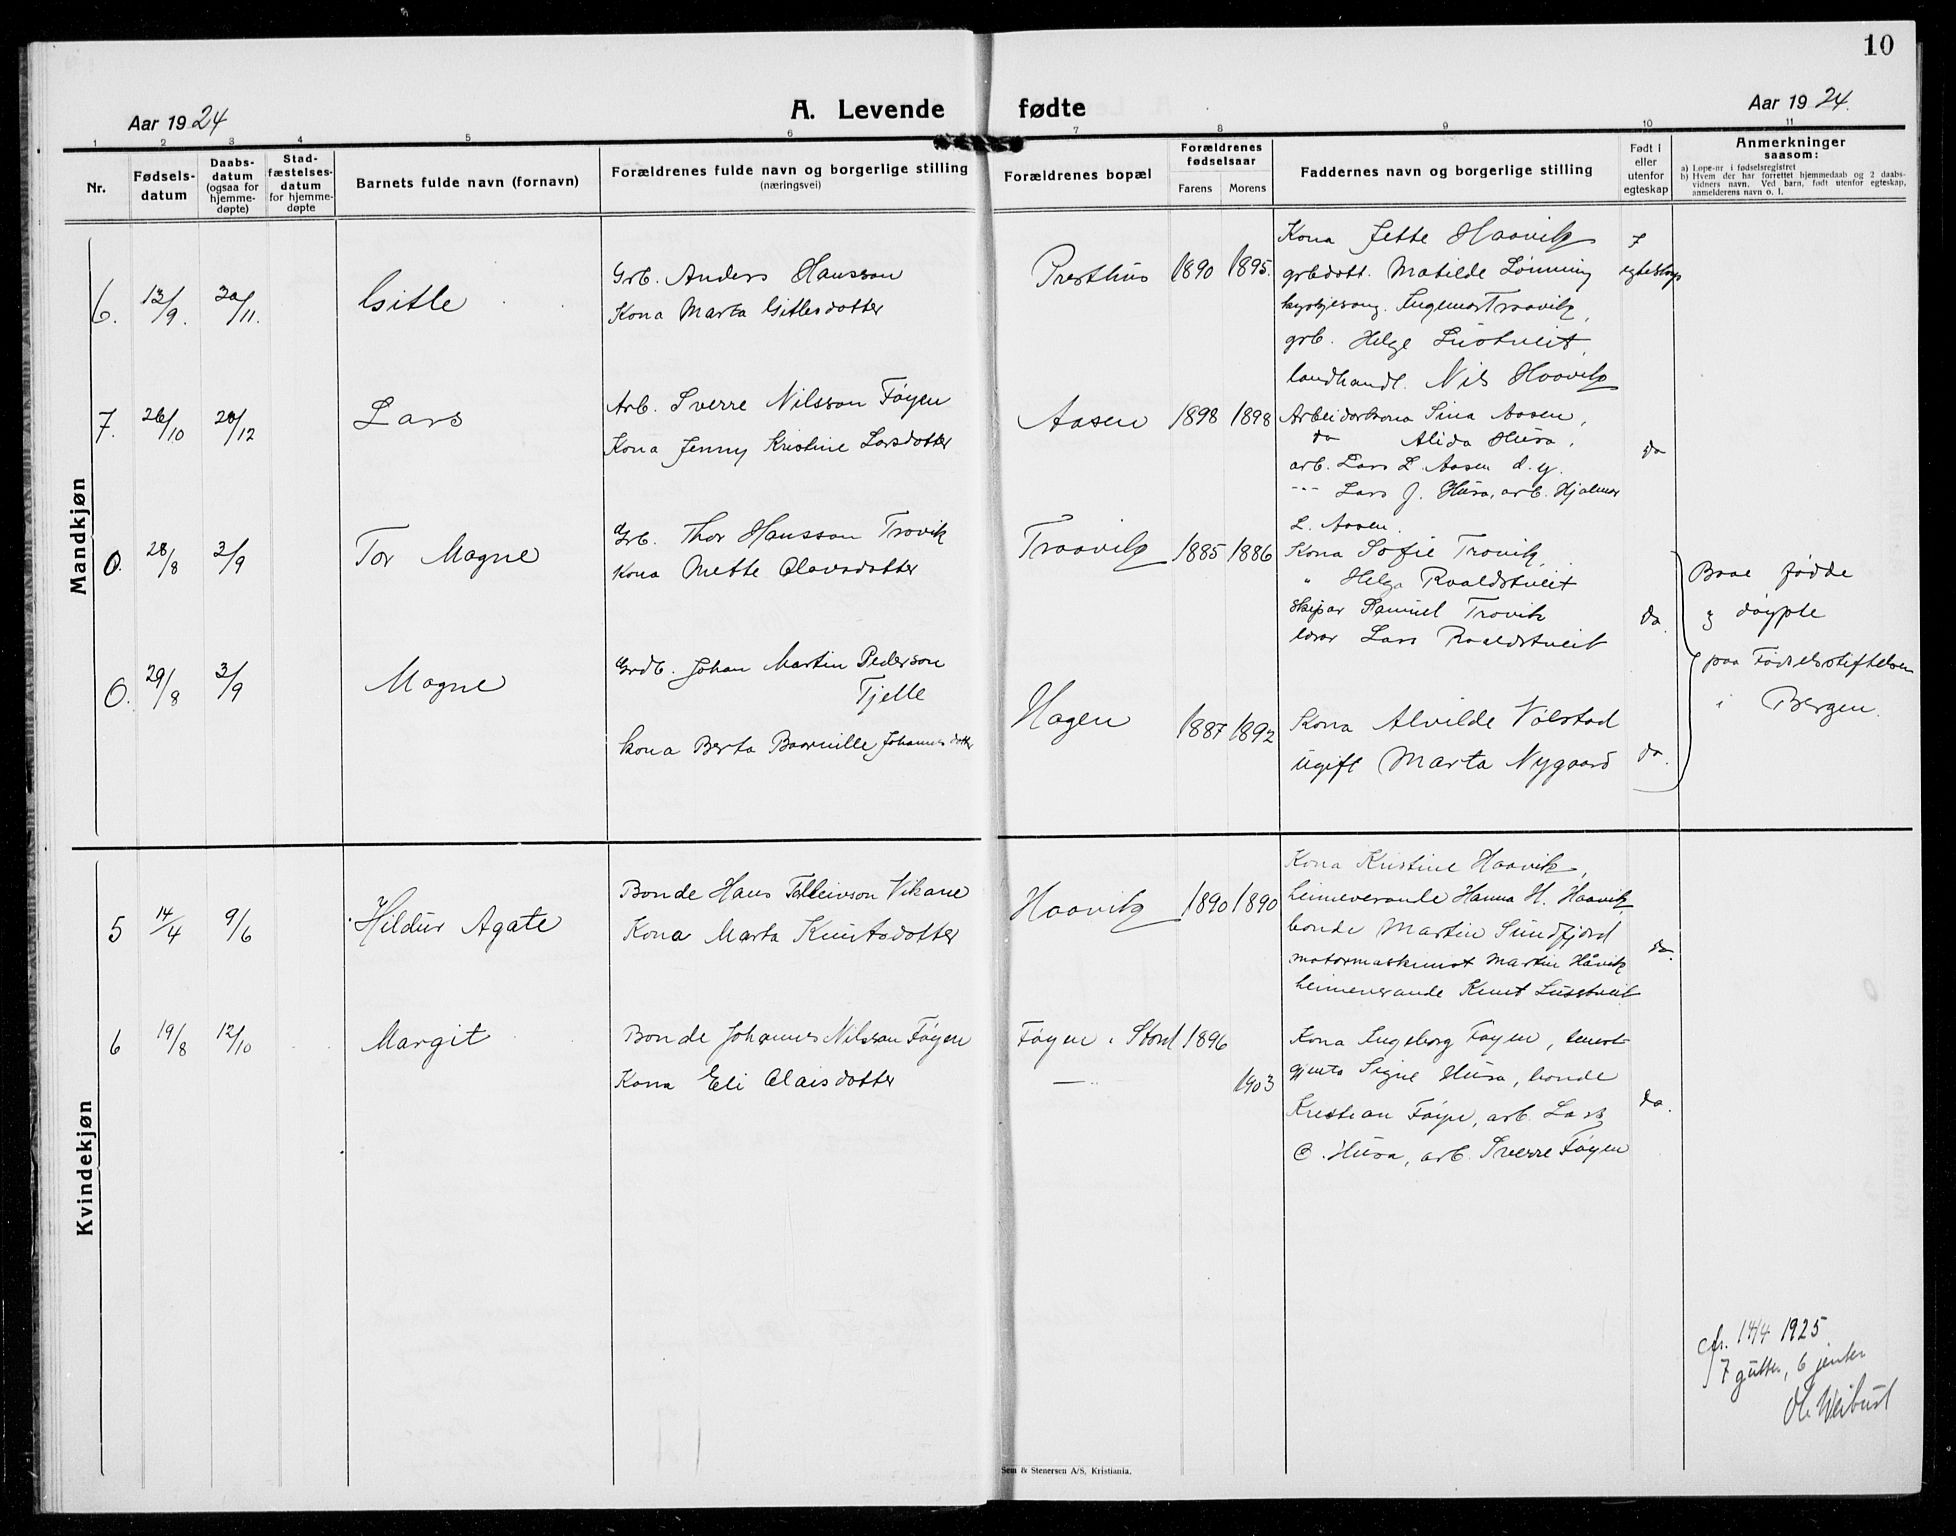 10
Aar 1924
A. Levende fødte
Aar 1924.
1 2 3 4 5 6 7 8 9 10 11
Nr.
Fødsels-
datum
Daabs-
datum
(ogsaa for
hjemme-
døpte)
Stad-
fæstelses-
datum
for hjemme-
døpte
Barnets fulde navn (fornavn)
Forældrenes fulde navn og borgerlige stilling
(næringsvei)
Forældrenes bopæl
Forældrenes
fødselsaar
Farens Morens
Faddernes navn og borgerlige stilling
Født i
eller
utenfor
egteskap
Anmerkninger
saasom:
a) Løpe-nr i fødselsregistret
b) Hvem der har forrettet hjemmedaab og 2 daabs-
vidners navn. Ved barn, født utenfor egteskap,
anmelderens navn o. l.
Mandkjøn
6. 13/9. 30/11. Gitle
Grb. Anders Hansson
Kona Marta Gitlesdotter
Presthus 1890 1895.
Kona Jette Haavik
grbdott. Matilde Lønning
kyrkjesong. Ingemar Traavik,
grb. Helge Lustveit,
landhandl. Nils Haavik
I
egteskap
7. 26/10 28/12 Lars
Arb. Sverre Nilsson Føyen
Kona Jenny Kristine Larsdotter
Aasen 1898 1898
Arbeidarkona Sina Aasen,
do Alida Husa,
arb. Lars L. Aasen d. y.
--- Lars J. Husa, arb. Hjalmar
L. Aasen.
do
0. 28/8 3/9 Tor Magne
Grb. Thor Hansson Trovik
Kona Mette Olavsdotter
Traavik 1885 1886
Kona Sofie Trovik,
" Helga Roaldstveit
skipar Samuel Trovik
lærar Lars Roaldstveit
do.
Baae fødde
og døypte
paa Fødselsstiftelsen
i Bergen.
0. 29/8 3/9 Magne
Grdb. Johan Martin Pederson
Tjelle
kona Berta Baarnille Johannesdotter
Hagen 1887 1892
Kona Alvilde Vølstad
ugift Marta Nygaard
do.
Kvindekjøn
5 14/4 9/6 Hildur Agate
Bonde Hans Tolleivson Vikane
Kona Marta Knutsdotter
Haavik 1890 1890
Kona Kristine Haavik,
heimeverande Hanna H. Haavik,
bonde Martin Sundfjord
motormaskinist Martin Håvik
heimeverande Knut Lusstveit
do.
6 19/8 12/10 Margit
Bonde Johannes Nilsson Føyen
Kona Eli Olaisdotter
Føyen i Stord 1896
— 1903
Kona Ingeborg Føyen, tenest-
gjenta Signe Husa, bonde
Kristian Føyen, arb. Lars
O. Husa, arb. Sverre Føyen
do.
cfr. 14/4 1925
7 gutter, 6 jenter
Ole Weibust
Sem & Stenersen A/S, Kristiania.